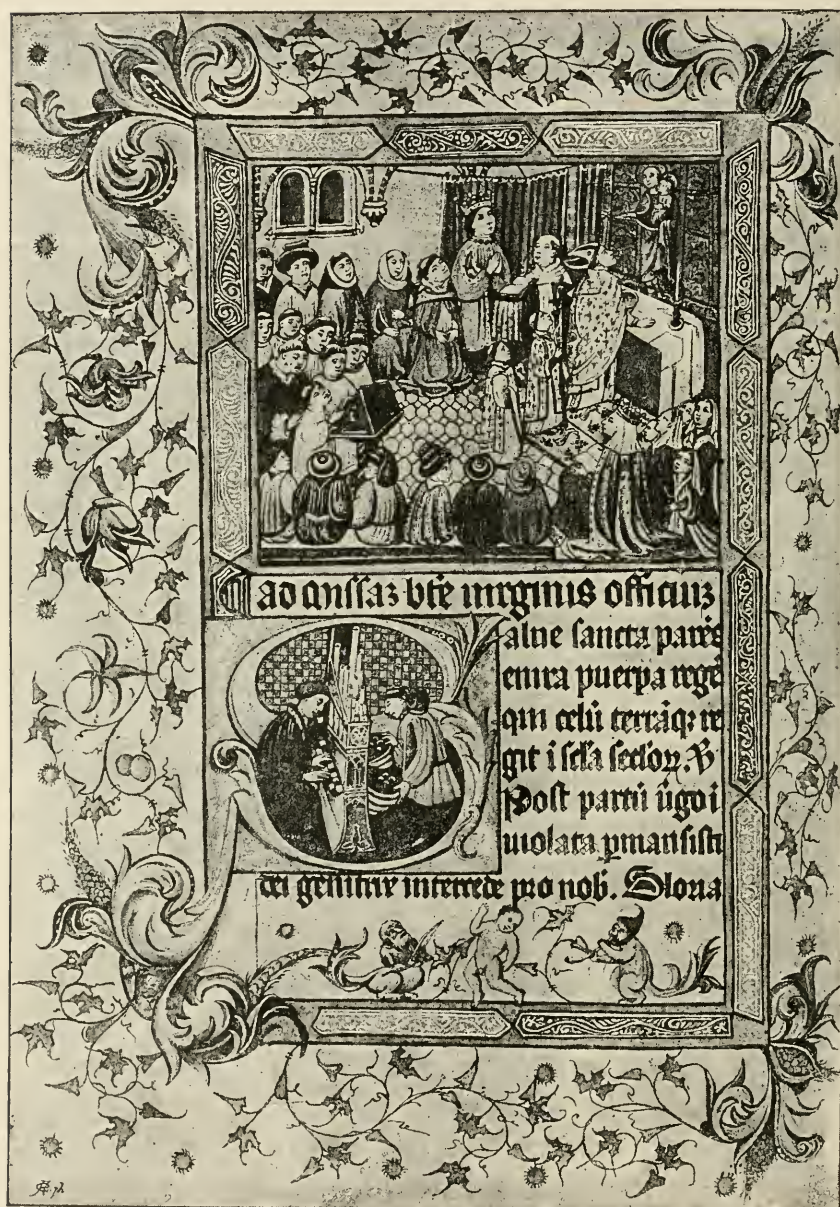 ad missaz bte virginis officiuz
Salue sancta parēs
enixa puerpa regē
qui celū terrāqz re
git i scła scłoꝝ. ℣
Post partū ūgo i
uiolata ꝑmansisti
dei genitrix intercede pro nob̄. Gloria